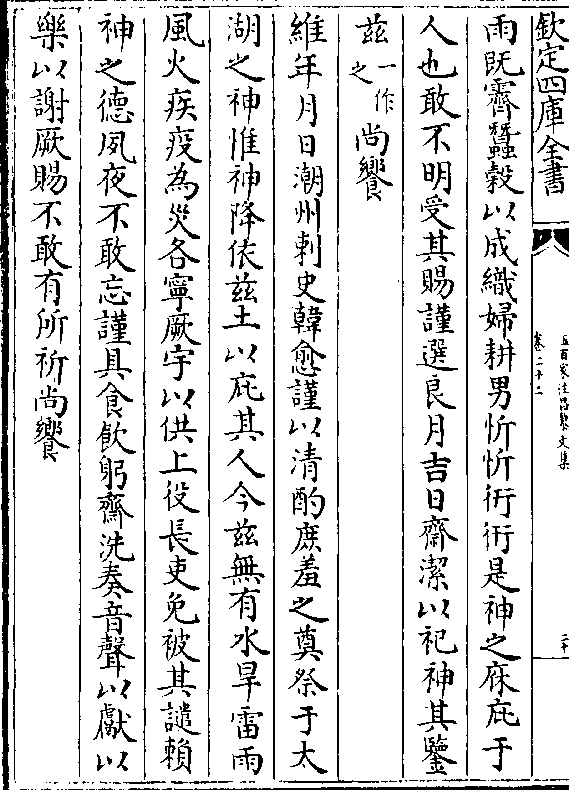 欽定四庫全書
五百家注昌黎文集
卷二十二
二十
雨既霽蠶穀以成織婦耕男忻忻衎衎是神之庥庇于
人也敢不明受其賜謹選良月吉日齋潔以祀神其鑒
兹一作之尚饗
維年月日潮州刺史韓愈謹以清酌庶羞之奠祭于太
湖之神惟神降依兹土以庇其人今兹無有水旱雷雨
風火疾疫為災各寧厥宇以供上役長吏免被其譴賴
神之德夙夜不敢忘謹具食飲躬齋洗奏音聲以獻以
樂以謝厥賜不敢有所祈尚饗